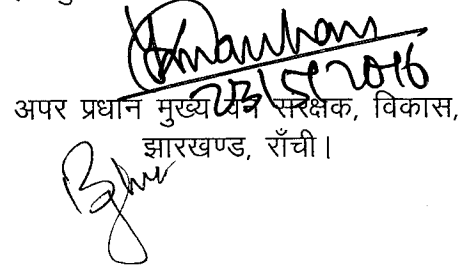 23/5/2016
अपर प्रधान मुख्य वन संरक्षक, विकास,
झारखण्ड, राँची।